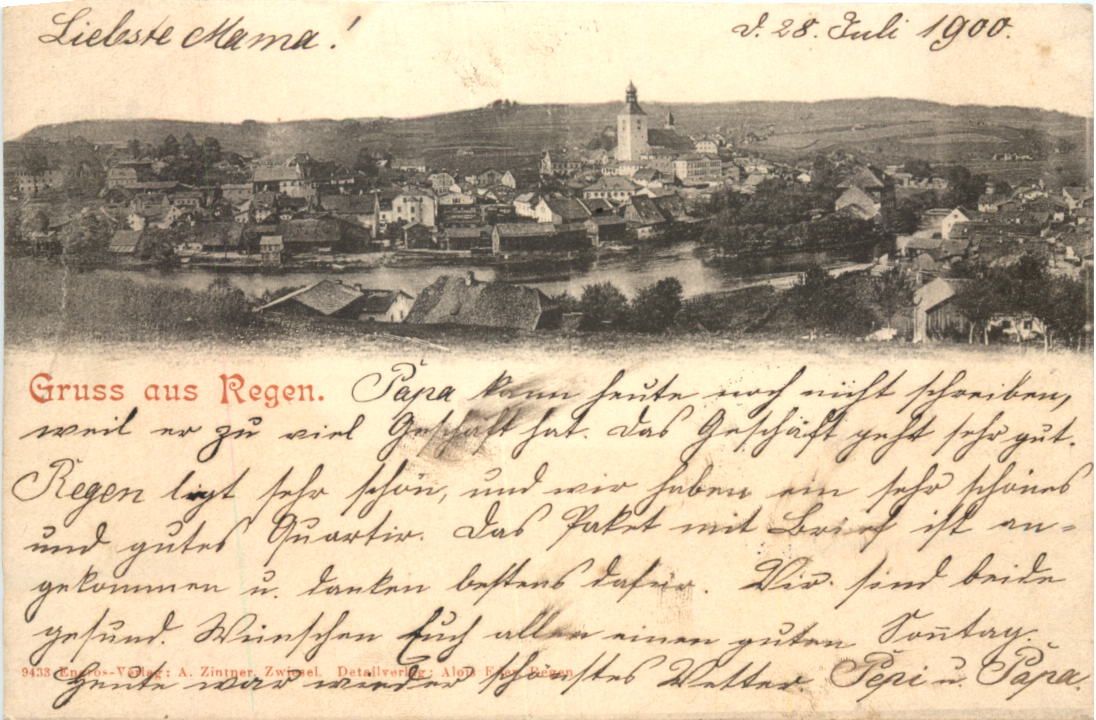 Liebste Mama! d. 28. Juli 1900.
Gruss aus Regen. Papa kann heute noch nicht schreiben,
weil er zu viel Geschäft hat. Das Geschäft geht sehr gut.
Regen ligt sehr schön, und wir haben ein sehr schönes
und gutes Quartir. Das Paket mit Brief ist an-
gekommen u. danken bestens dafür. Wir sind beide
gesund. Wünschen Euch allen einen guten Sonntag.
9433 Engros-Verlag: A. Zintner, Zwiesel. Detailverlag: Alois Regen
Heute war wieder schönstes Wetter Pepi u. Papa.